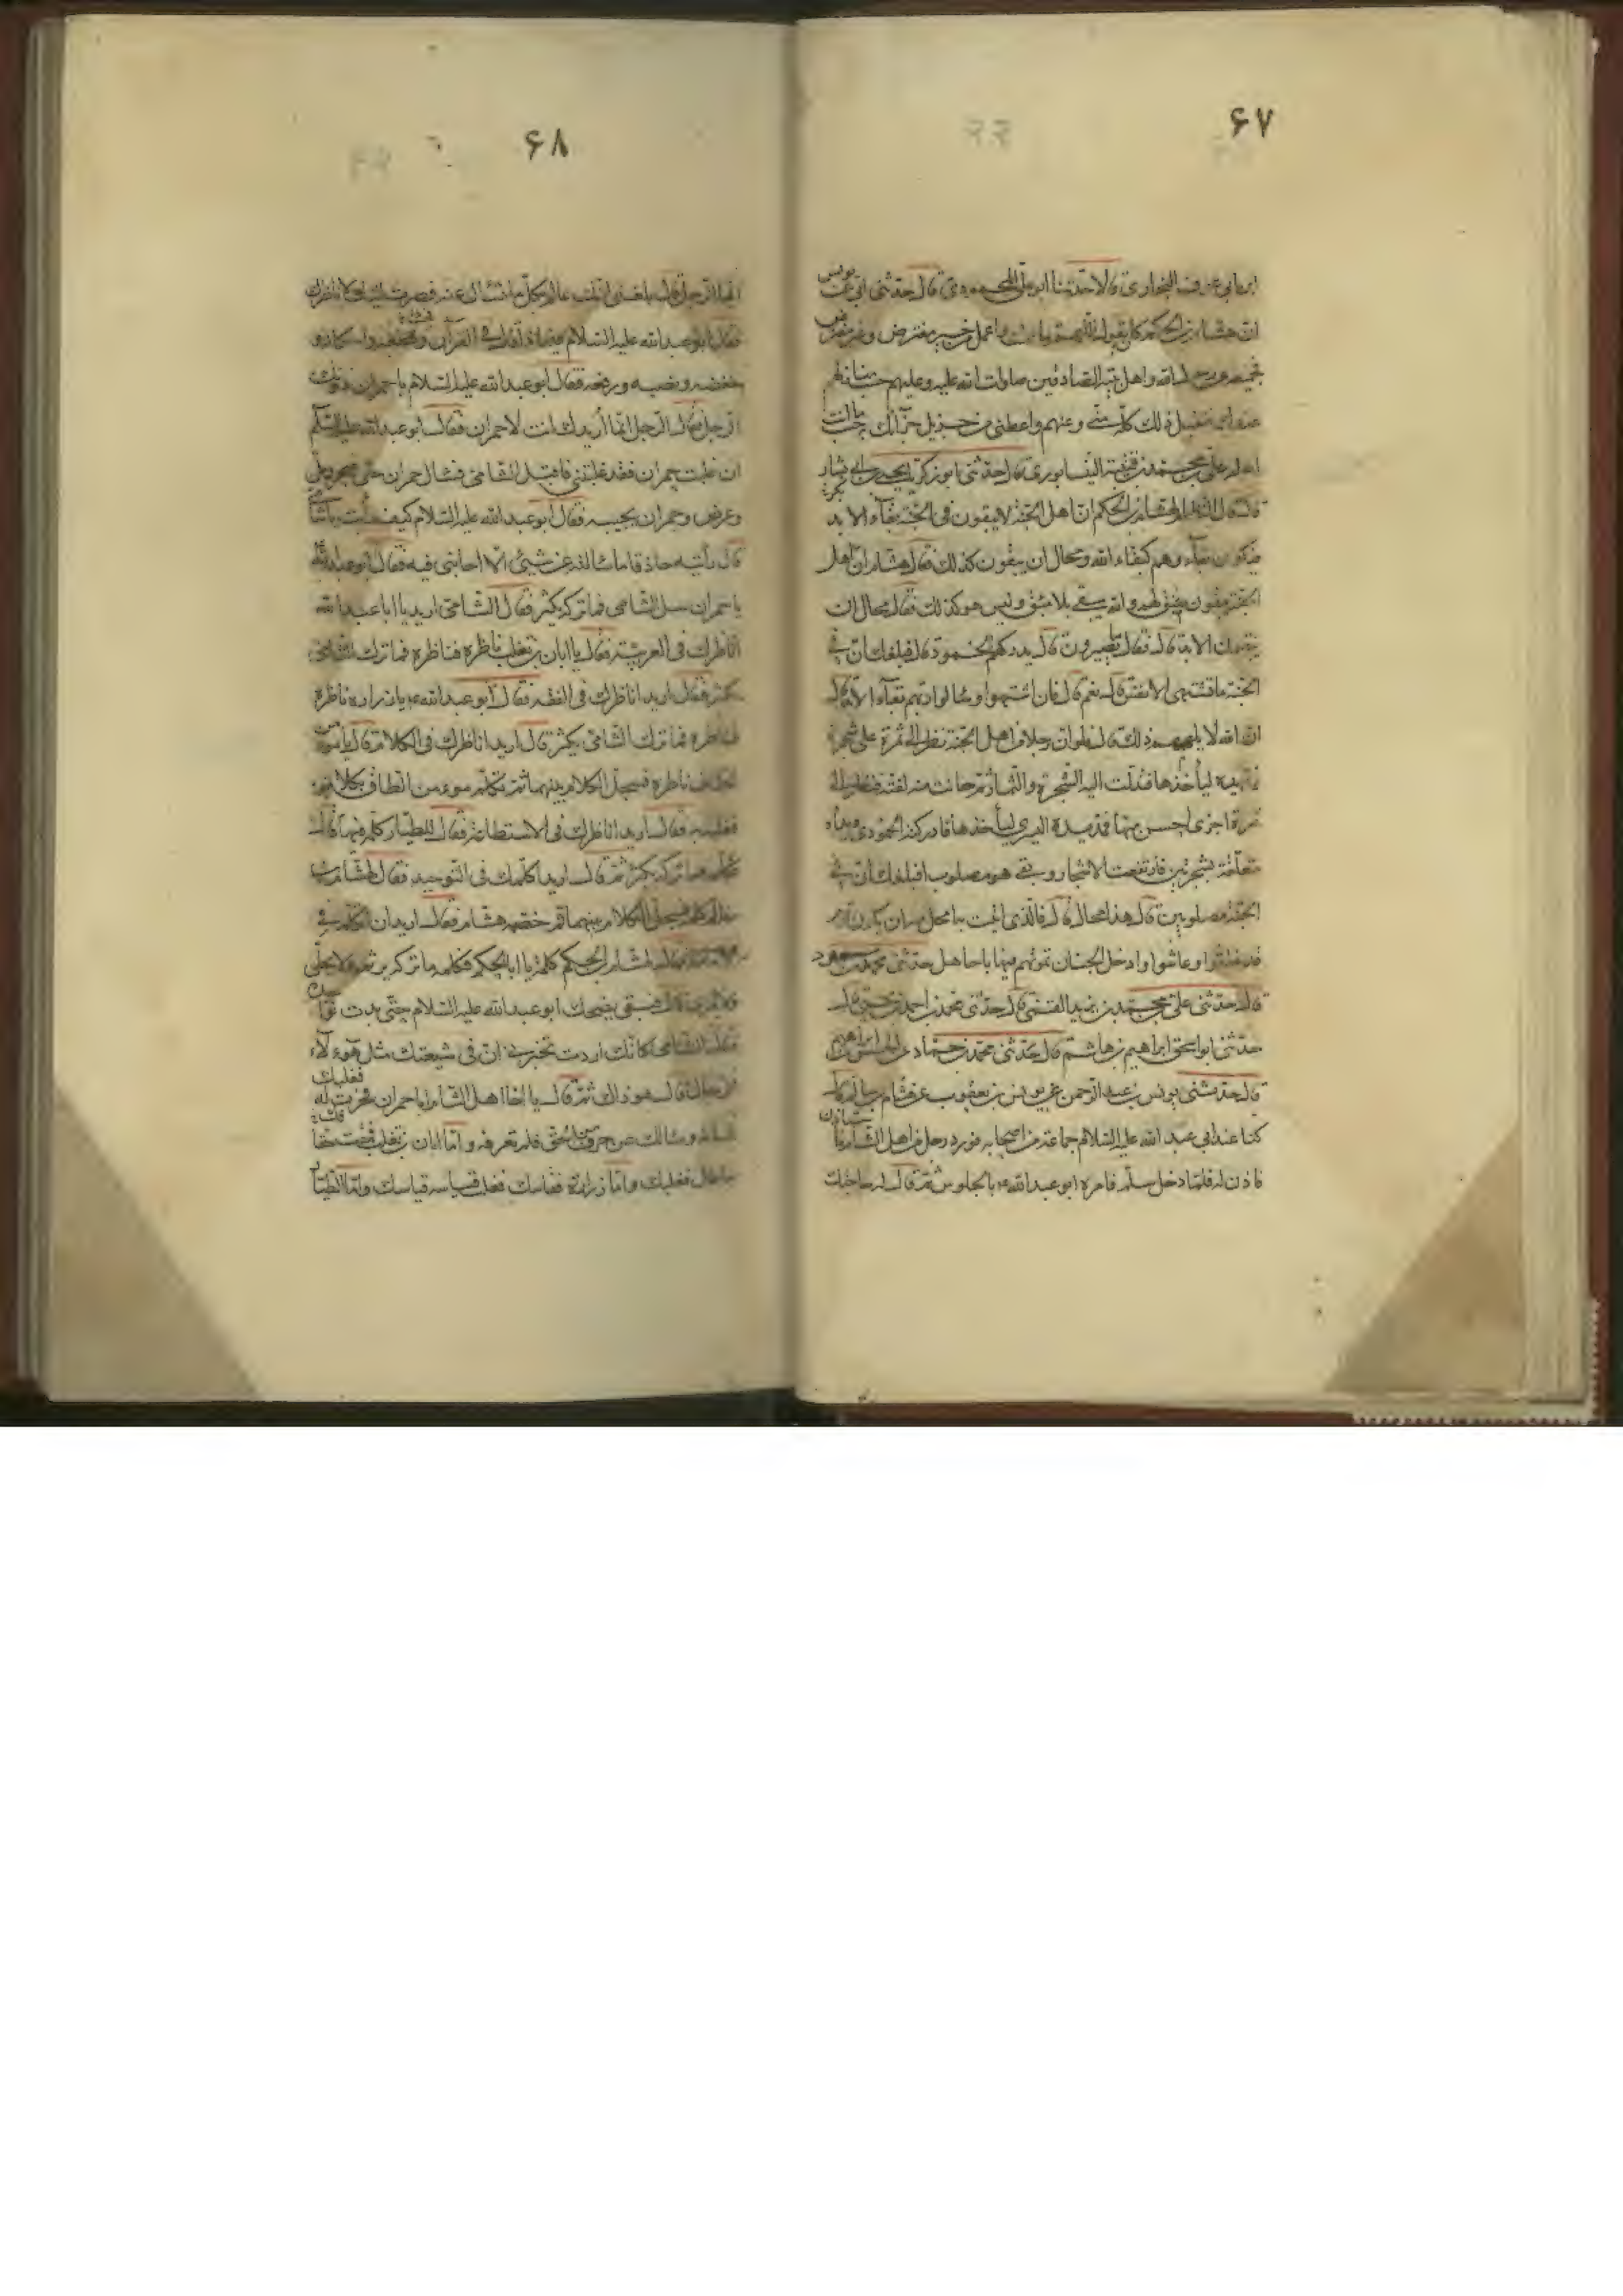 ۶۷
ابن ابى عوف البخارى قالا حدثنا ابو على المحمودى قال حدثنى ابى عن يونس
ان هشام بن الحكم كان يقول اللهم ما عملت واعمل من خير مفترض وغير مفترض
فجميعه عن رسول الله واهل بيته الصادقين صلوات الله عليه وعليهم حسب منازلهم
عندك فتقبل ذلك كله منى وعنهم واعطنى من جزيل جزائك حسب ما انت
اهله على بن محمد بن قتيبة النيسابورى قال حدثنى ابو زكريا يحيى بن ابى بكر
قال قال النظام لهشام بن الحكم ان اهل الجنة لا يبقون فى الجنة بقاء الابد
فيكون بقاؤهم كبقاء الله ومحال ان يبقون كذلك فقال هشام ان اهل
الجنة يبقون بمبق لهم والله يبقى بلا مبق وليس هو كذلك فقال محال ان
يبقوا الابد قال فقال ما يصيرون قال يدركهم الخمود قال فبلغك ان فى
الجنة ما تشتهى الانفس قال نعم قال فان اشتهوا وسالوا ربهم بقاء الابد قال
ان الله لا يلهمهم ذلك قال فلو ان رجلا من اهل الجنة نظر الى ثمرة على شجرة
فمد يده ليأخذها فتدلت اليه الشجرة والثمار ثم حانت منه لفتة فنظر الى
ثمرة اخرى احسن منها فمد يده اليسرى ليأخذها فادركه الخمود ويداه
متعلقة بشجرتين فارتفعت الاشجار وبقى هو مصلوب افبلغك ان فى
الجنة مصلوبين قال هذا محال قال فالذى اتيت به امحل منه ان يكون قوم
قد خلقوا وعاشوا وادخل الجنان تموتهم فيها يا جاهل حدثنى محمد بن مسعود
قال حدثنى على بن محمد بن يزيد القمى قال حدثنى محمد بن احمد بن يحيى قال
حدثنى ابو اسحق ابراهيم بن هاشم قال حدثنى محمد بن حماد عن الحسن بن ابراهيم
قال حدثنى يونس بن عبد الرحمن عن يونس بن يعقوب عن هشام بن سالم قال
كنا عند ابى عبد الله عليه السلام جماعة من اصحابه فورد رجل من اهل الشام فاستاذن
فاذن له فلما دخل سلم فامره ابو عبد الله ع بالجلوس ثم قال له ما حاجتك
۶۸
ايها الرجل قال بلغنى انك عالم بكل ما تسأل عنه فصرت اليك لاناظرك
فقال ابو عبد الله عليه السلام فيما ذا قال فى القرآن وقطعه واسكانه و
خفضه ونصبه ورفعه فقال ابو عبد الله عليه السلام يا حمران دونك
الرجل فقال الرجل انما أريدك انت لا حمران فقال ابو عبد الله عليه السلام
ان غلبت حمران فقد غلبتنى فاقبل الشامى فسأل حمران حتى ضجر وملّ
وعرض وحمران يجيبه فقال ابو عبد الله عليه السلام كيف رأيت يا شامى
قال رأيته حاذقا ما سالته عن شيئ الا اجابنى فيه فقال ابو عبد الله
يا حمران سل الشامى فما تركه يكشر فقال الشامى اريد يا ابا عبد الله
اناظرك فى العربية فقال يا ابان بن تغلب ناظره فناظره فما ترك الشامى
يكشر فقال اريد اناظرك فى الفقه فقال ابو عبد الله ع يا زراره ناظره
فناظره فما ترك الشامى يكشر قال اريد اناظرك فى الكلام قال يا مومن
الطاق ناظره فسجل الكلام بينهما ثم تكلم مومن الطاق بكلامه
فغلبه فقال اريد اناظرك فى الاستطاعة فقال للطيار كلمه فيها قال
فكلمه فما تركه يكشر ثم قال اريد اكلمك فى التوحيد فقال لهشام بن
سالم كلمه فسجل الكلام بينهما ثم خصمه هشام فقال اريد ان اتكلم فى
الامامة فقال لهشام بن الحكم كلمه يا ابا الحكم فكلمه ما تركه يريم ولا يحلى
ولا يمر قال فبقى يضحك ابو عبد الله عليه السلام حتى بدت نواجذه
فقال الشامى كانك اردت تخبرنى ان فى شيعتك مثل هؤلاء
الرجال قال هو ذاك ثم قال يا اخا اهل الشام اما حمران فحزقك فحرت له فغلبك
بلسانه وسالك عن حرف من الحق فلم تعرفه واما ابان بن تغلب فمغث حقا
بباطل فغلبك واما زراره فقاسك فغلب قياسه قياسك واما الطيار